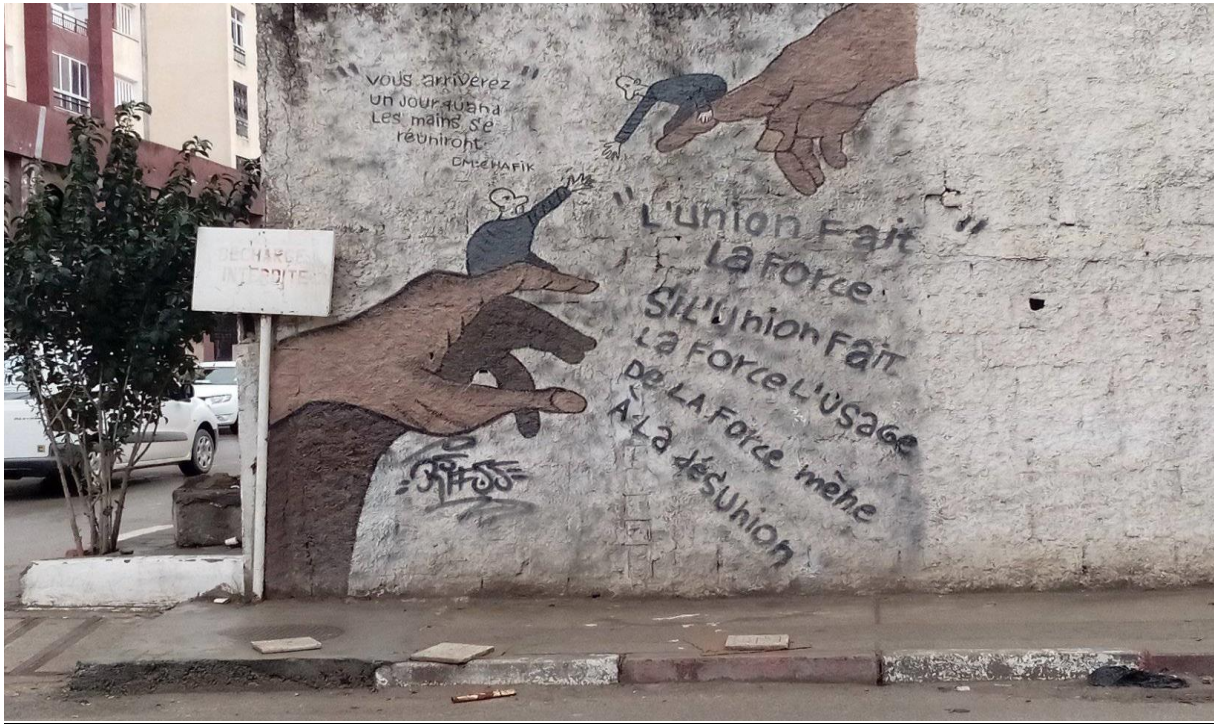 "vous arriverez"
un jour quand
Les mains se
réuniront
DM:CHAFIK
DECHARGE
INTERDITE
"L'union Fait"
La Force
Si L'Union Fait
La Force L'usage
De LA Force mène
À La désunion